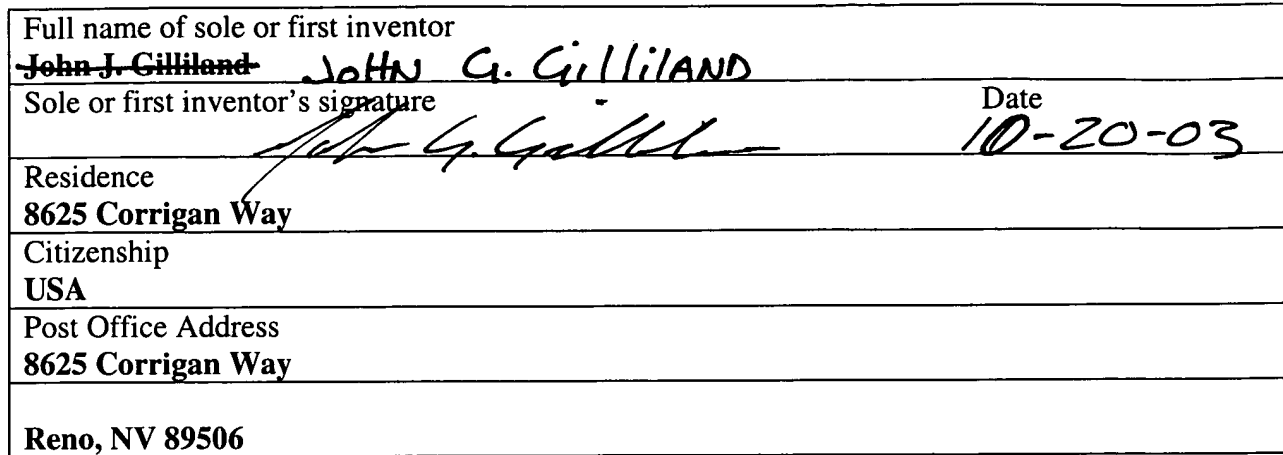 Full name of sole or first inventor
John J. Gilliland JOHN G. GillilAND
Sole or first inventor's signature Date
John G. Gilliland 10-20-03
Residence
8625 Corrigan Way
Citizenship
USA
Post Office Address
8625 Corrigan Way
Reno, NV 89506